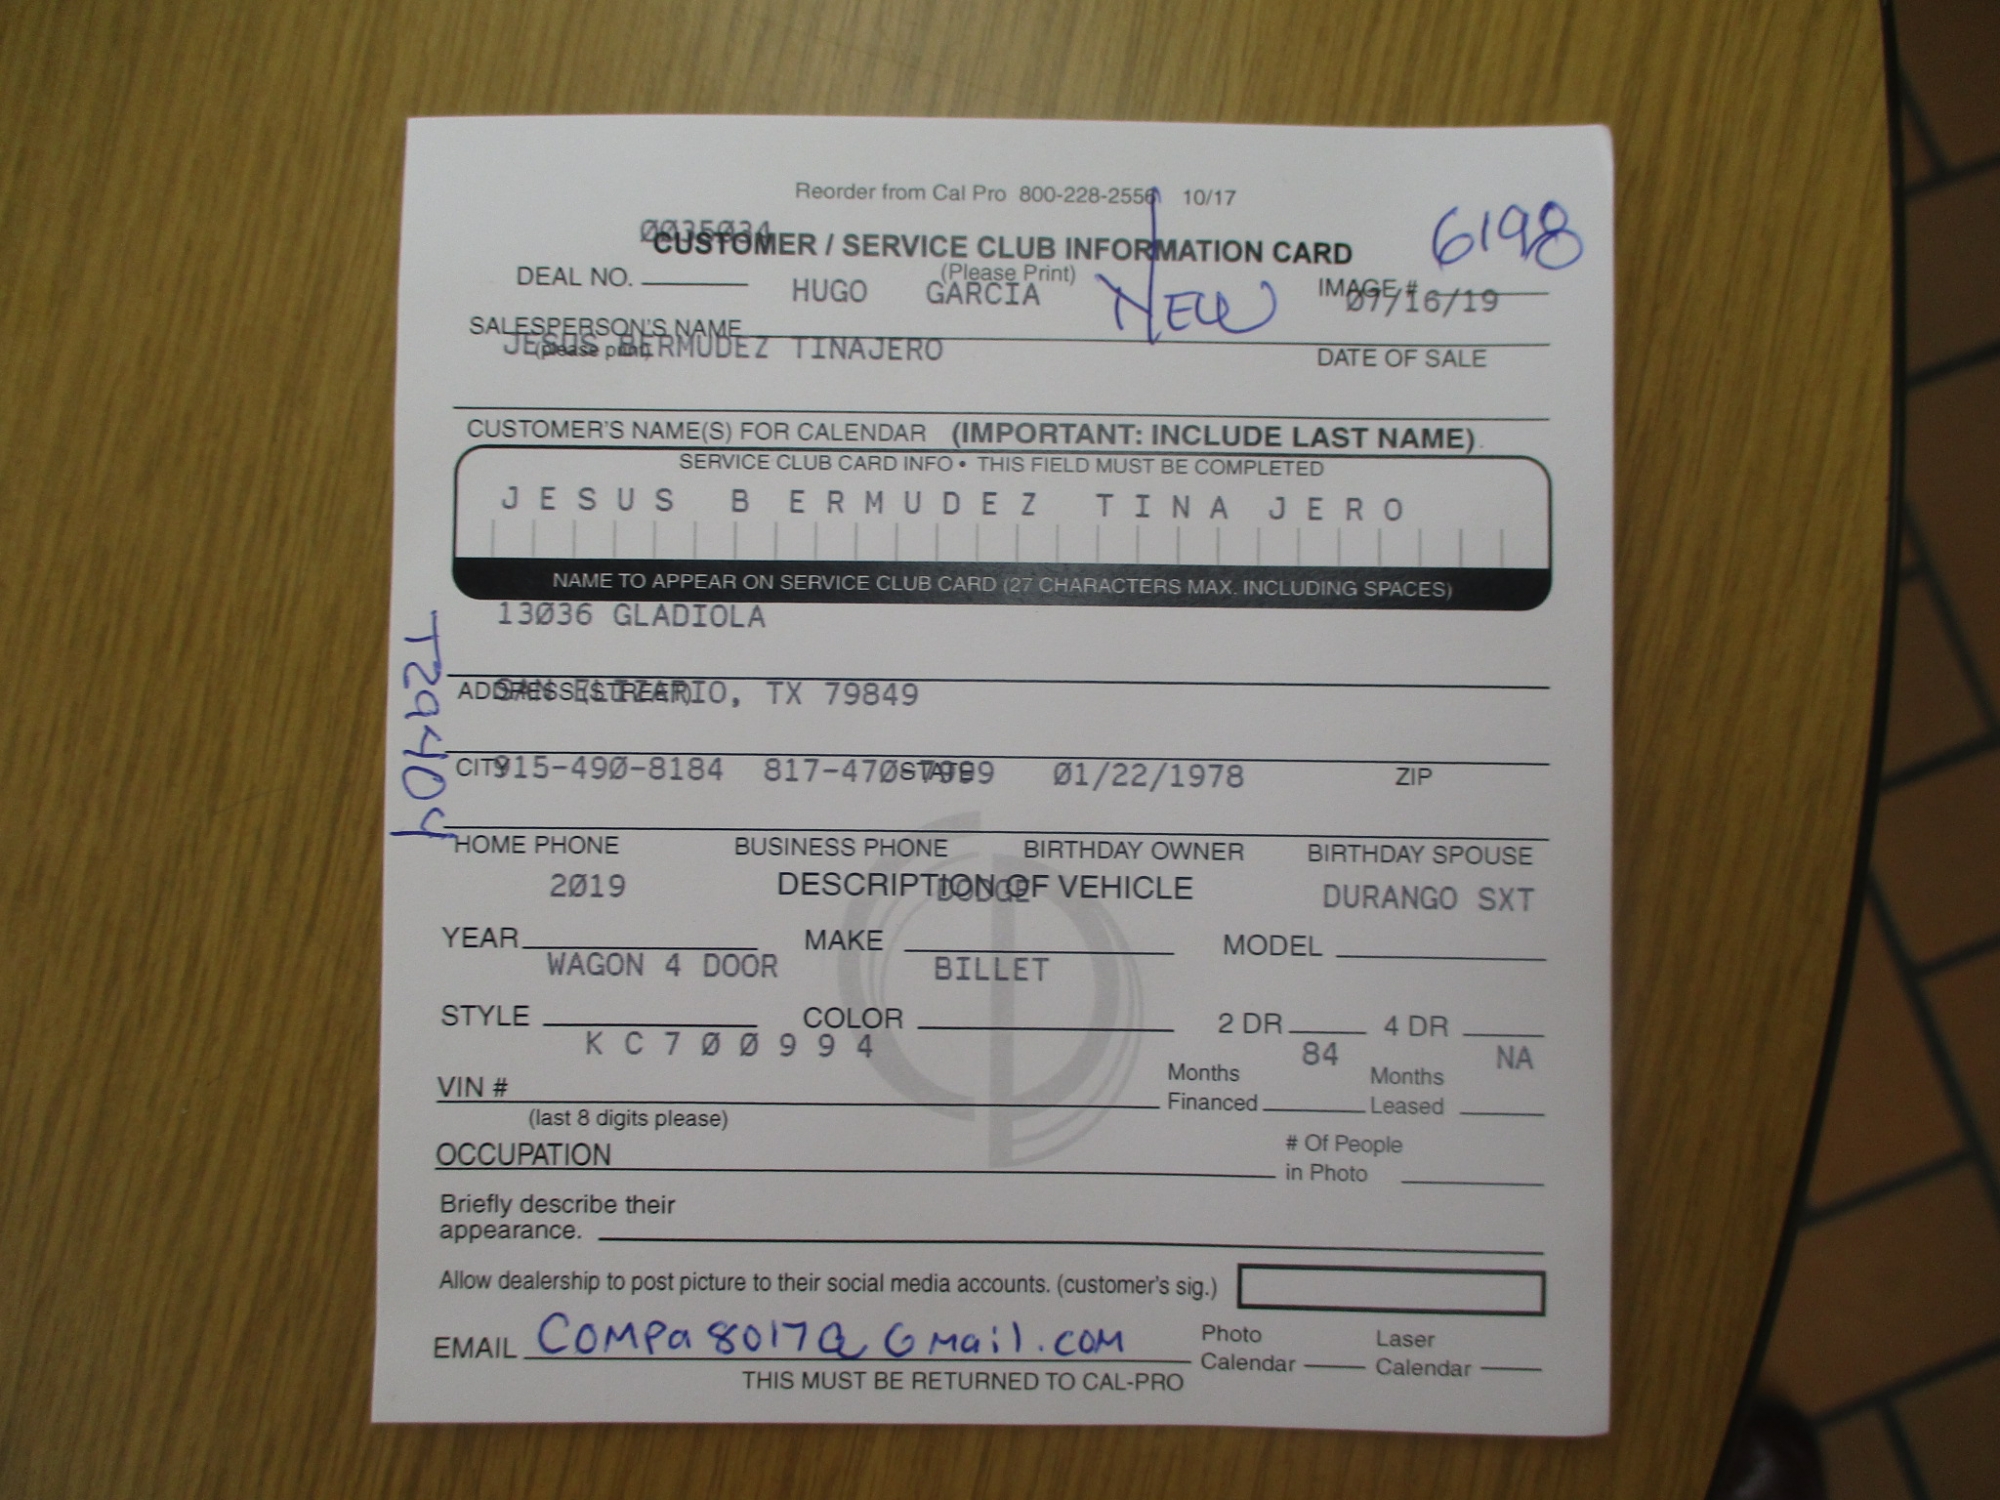 Reorder from Cal Pro 800-228-2556 10/17
0035034
CUSTOMER / SERVICE CLUB INFORMATION CARD
6198
(Please Print)
DEAL NO.
HUGO GARCIA
NEW
IMAGE #
07/16/19
SALESPERSON'S NAME
(please print)
JESUS BERMUDEZ TINAJERO
DATE OF SALE
CUSTOMER'S NAME(S) FOR CALENDAR (IMPORTANT: INCLUDE LAST NAME).
SERVICE CLUB CARD INFO • THIS FIELD MUST BE COMPLETED
JESUS BERMUDEZ TINAJERO
NAME TO APPEAR ON SERVICE CLUB CARD (27 CHARACTERS MAX. INCLUDING SPACES)
13036 GLADIOLA
T29404
ADDRESS (STREET)
SAN ELIZARIO, TX 79849
CITY STATE ZIP
915-490-8184 817-470-7999 01/22/1978
HOME PHONE BUSINESS PHONE BIRTHDAY OWNER BIRTHDAY SPOUSE
DESCRIPTION OF VEHICLE
2019 DODGE DURANGO SXT
YEAR MAKE MODEL
WAGON 4 DOOR BILLET
STYLE COLOR 2 DR 4 DR
KC700994 84 NA
VIN # Months Financed Months Leased
(last 8 digits please)
OCCUPATION # Of People in Photo
Briefly describe their
appearance.
Allow dealership to post picture to their social media accounts. (customer's sig.)
EMAIL Compa8017@Gmail.com Photo Calendar Laser Calendar
THIS MUST BE RETURNED TO CAL-PRO